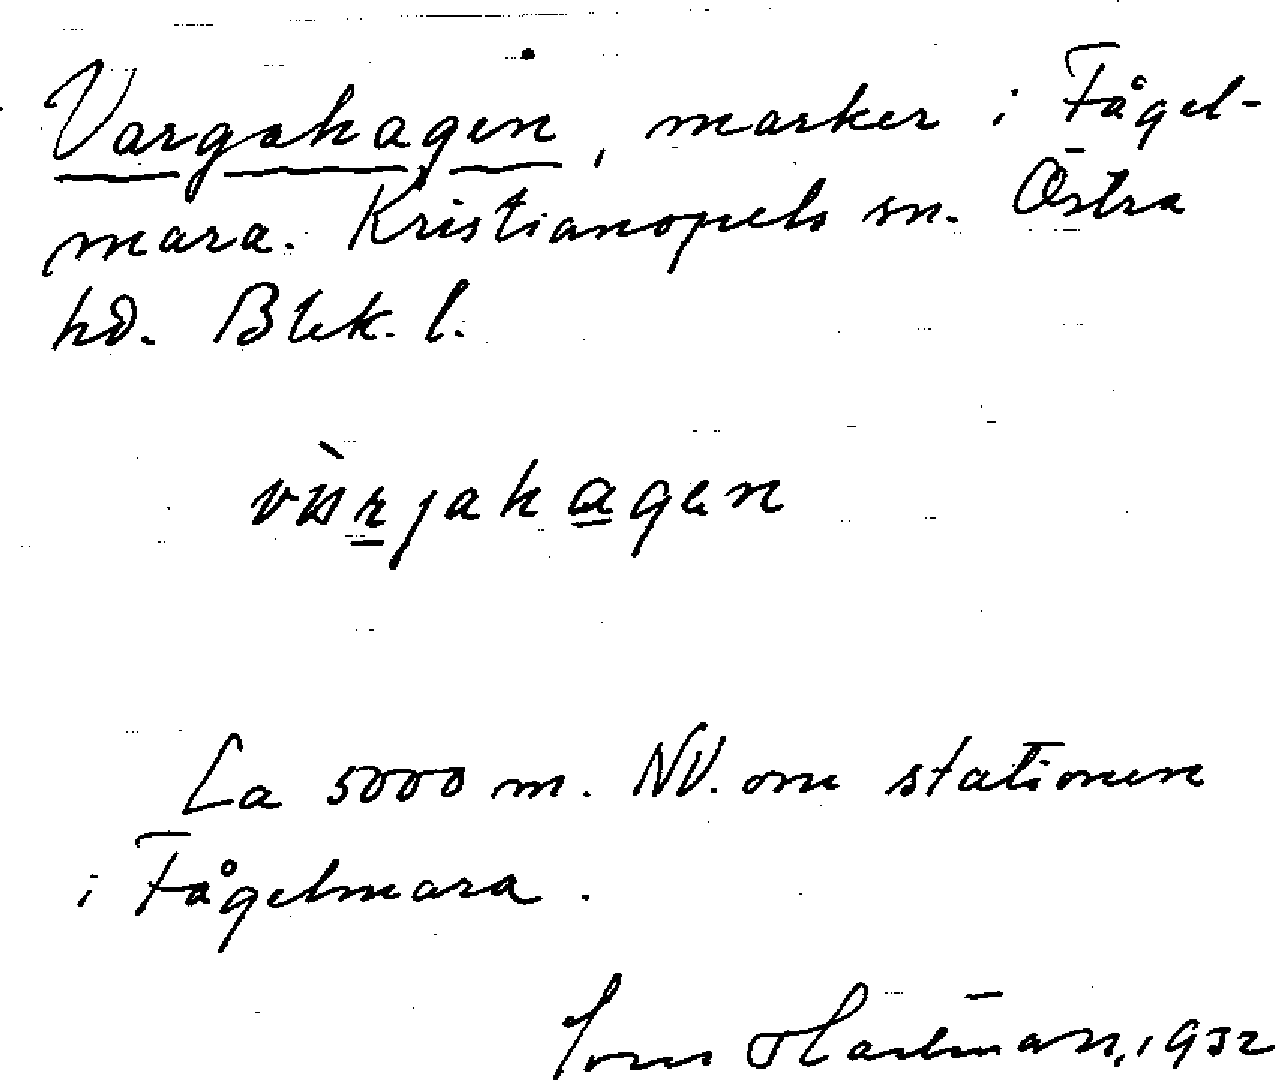 Vargahagen, marker i Fågel-
mara. Kristianopels sn. Östra
hd. Blek. l.
La 5000 m. NV. om stationen
i Fågelmara.
Hartman, 1932